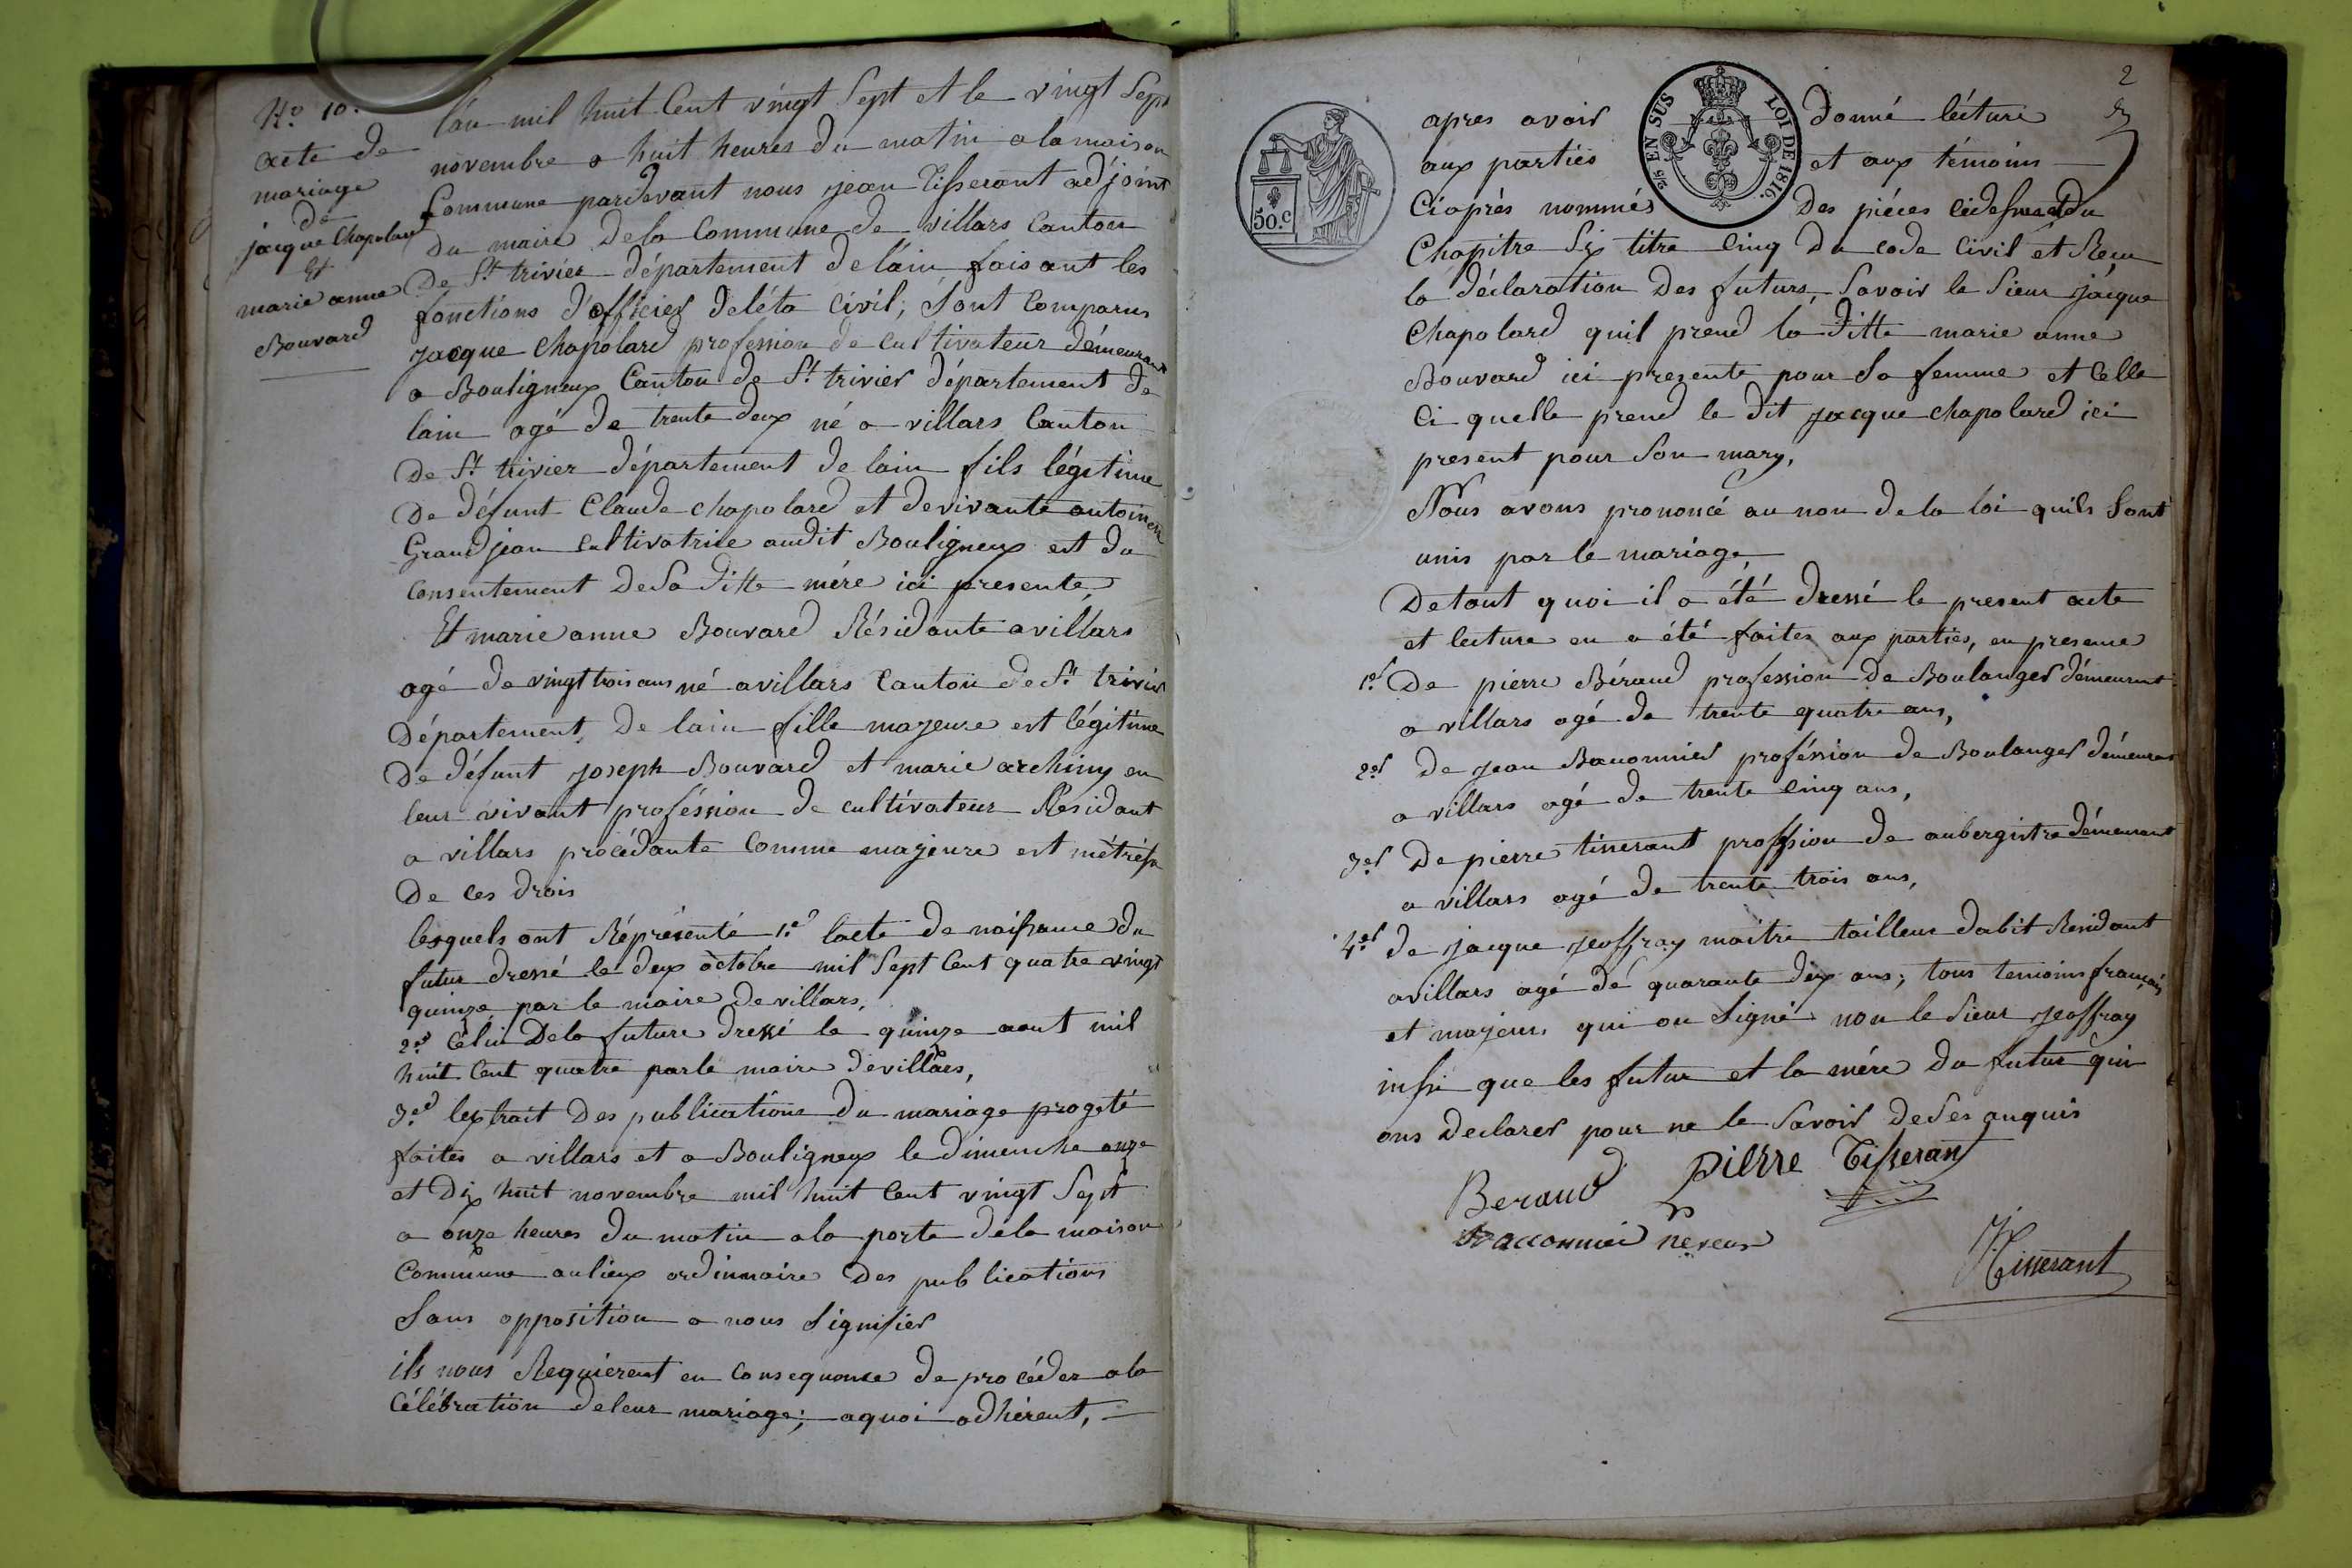 No 10.
acte de
mariage
de
jacque Chapolard
Et
marie anne
Bouvard
lan mil huit Cent vingt Sept et le vingt Sept
novembre a huit heures du matin a la maison
Commune pardevant nous jean Tisserant adjoint
du maire dela Commune de villars Canton
De St trivier département de lain faisant les
fonctions d'officier deléta Civil; Sont Comparus
jacque Chapolard profession de cultivateur démeurant
a Bouligneux Canton de St trivier département de
lain agé de trente deux né a villars Canton
de St trivier département de lain fils légitime
de défunt Claude chapolard et devivante antoinette
Grandjean cultivatrice audit Bouligneux est du
consentement deSa ditte mére ici presente,
Et marie anne Bouvard Résidante avillars
agé de vingt trois ans né avillars Canton de St trivier
Département de lain fille majeure est légitime
de défunt joseph Bouvard et marie archiny en
leur vivant proféssion de cultivateur Résidant
a villars procédante Comme majeure est métresse
de ces drois
lesquels ont Réprésenté 1.o lacte de naissance du
futur dressé le deux octobre mil Sept Cent quatre vingt
quinze par le maire devillars,
2.o Celui Dela future dressé le quinze aout mil
huit Cent quatre parle maire devillars,
3.o lextrait Des publications du mariage progeté
faites a villars et a Bouligneux le Dimenche onze
et Dix huit novembre mil huit Cent vingt Sept
a onze heures du matin ala porte dela maison
Commune aulieux ordinnaire Des publications
Sans opposition a nous Signifier
ils nous Requierent en consequence de procéder ala
Célébration deleur mariage; aquoi adhérent,
2
apres avoir donné lécture
aux parties et aux témoins
Ciaprés nommés Des piéces cidessus et du
Chapitre Six titre Cinq du code Civil et Recu
la déclaration Des futurs, Savoir le Sieur jacque
Chapolard quil prend la ditte marie anne
Bouvard ici presente pour Sa femme et Celle
Ci quelle prend le dit jacque chapolard ici
present pour Son mary,
Nous avons prononcé au non dela loi quils Sont
unis par le mariage,
Detout quoi il a été dressé le present acte
et lecture en a été faites aux parties, en presence
1.o De pierre Béraud profession de Boulanger démeurant
a villars agé de trente quatre ans,
2.o de jean Baconnier proféssion de Boulanger démeurant
a villars agé de trente Cinq ans,
3.o De pierre tisserant profssion de aubergistre démeurant
a villars agé de trente trois ans,
4.o de jacque jeoffray maitre tailleur dabit Résidant
avillars agé dé quarante deux ans; tous temoins français
et majeurs qui on Signé non le Sieur jeoffray
insi que les futur et la mére du futur qui
ons declarer pour ne le Savoir deSes anquis
Beraud Pierre Tisseran
Baconnier neveux
J. Tisserant
50.c
2/5 EN SUS
LOI DE 1816.